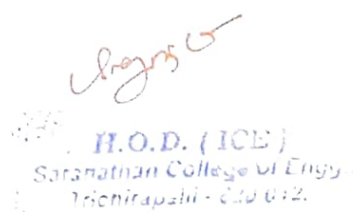 H.O.D. ( ICE )
Saranathan College of Engg.
Trichirapalli - 620 012.